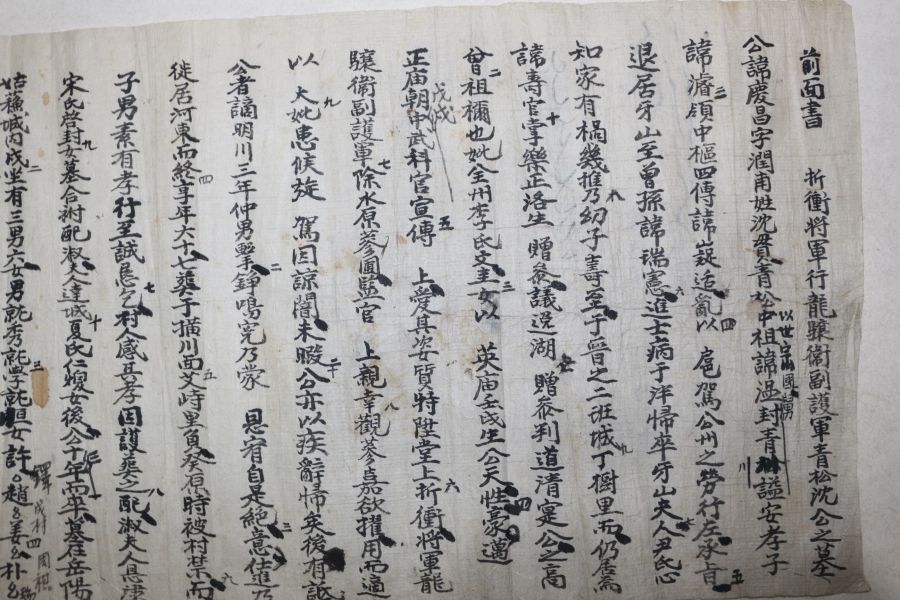 前面書　折衝將軍行龍驤衛副護軍青松沈公之墓
公諱慶昌字潤甫姓沈貫青松中祖諱温封青川謚安孝子
諱濬領中樞四傳諱嶷适亂以扈駕公州之勞行左承旨
退居牙山至曾孫諱瑞憲進士病于泮歸卒牙山夫人尹氏心
知家有禍幾推乃幼子壽至于晉之二班城丁樹里而仍居焉
諱壽官掌樂正洛生贈參議説湖贈參判道清寔公之高
曾祖禰也妣全州李氏文圭女以英庙壬戌生公天性豪邁
正庙朝中武科官宣傳上愛其姿質特陞堂上折衝將軍龍
驤衛副護軍除水原蔘圃監官上親幸觀蔘嘉欲擢用而適
以大妣患候旋駕因諒闇未暇公亦以疾辭歸矣後有詆
公者謫明川三年仲男擊錚鳴寃乃蒙恩宥自是絶意仕進乃
徙居河東而終享年六十七葬于橫川面文峙里負癸原時被村禁而
子男素有孝行至誠恳乞村人感其孝因護葬之配淑夫人恳康
宋氏啓封女墓合祔配淑夫人達城夏氏仁獲女後公十年而卒墓在岳陽
姑穌城內戌坐有三男六女男就秀就學就恒女許〻趙〻姜〻朴〻